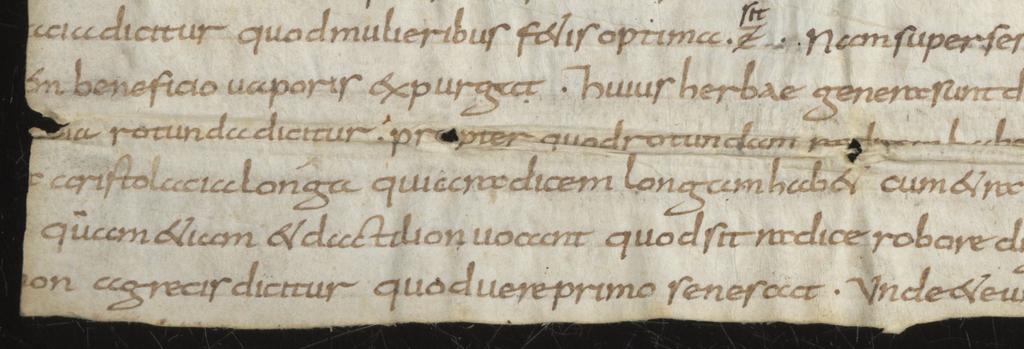 dicitur quod mulieribus fetis optima. sit Nam super ser
beneficio vaporis expurgat. huius herbae genera sunt d
rotunda dicitur. propter quod rotundam habe
aristolacia longa quia radicem longam hab& cum & ra
quam &iam & dactilion vocant quod sit radice robore di
agrecis dicitur quod vere primo senescat. Unde & eu